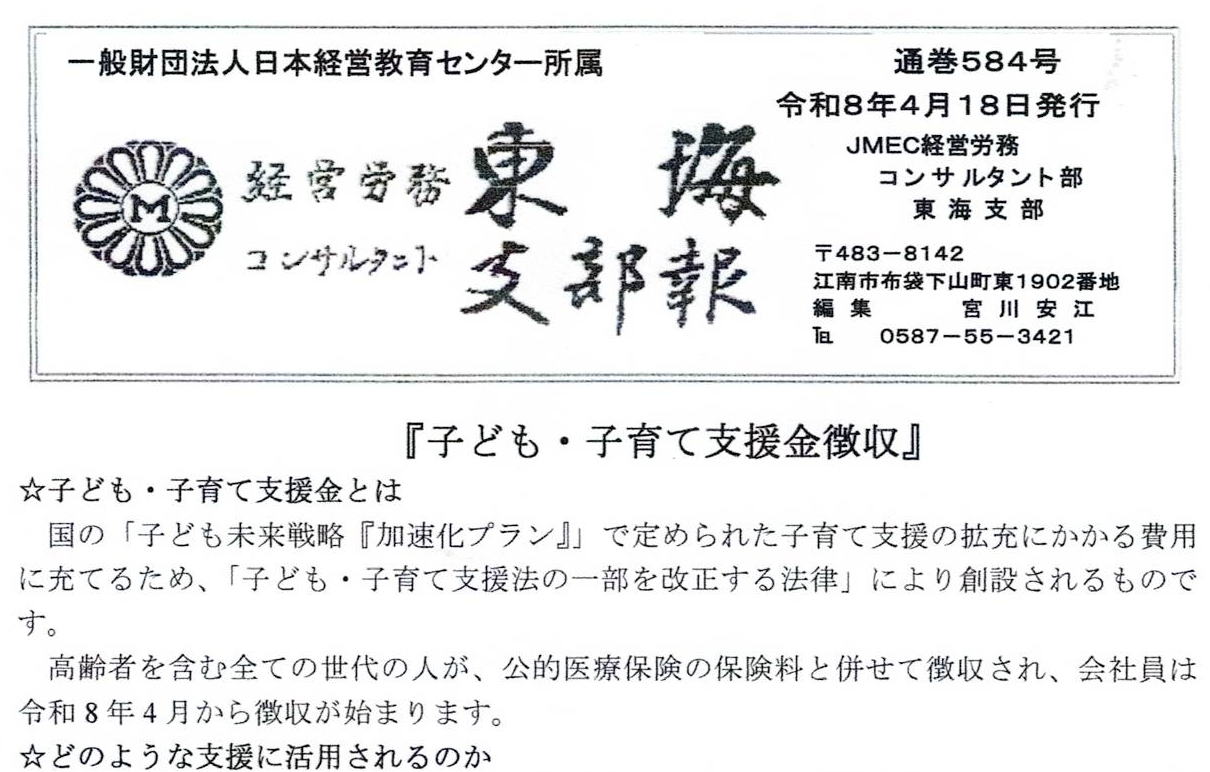 一般財団法人日本経営教育センター所属
通巻584号
令和8年4月18日発行
JMEC経営労務
コンサルタント部
東海支部
M
経営労務
コンサルタント
東海
支部報
〒483−8142
江南市布袋下山町東1902番地
編集 宮川安江
℡ 0587−55−3421
『子ども・子育て支援金徴収』
☆子ども・子育て支援金とは
国の「子ども未来戦略『加速化プラン』」で定められた子育て支援の拡充にかかる費用
に充てるため、「子ども・子育て支援法の一部を改正する法律」により創設されるもので
す。
高齢者を含む全ての世代の人が、公的医療保険の保険料と併せて徴収され、会社員は
令和8年4月から徴収が始まります。
☆どのような支援に活用されるのか